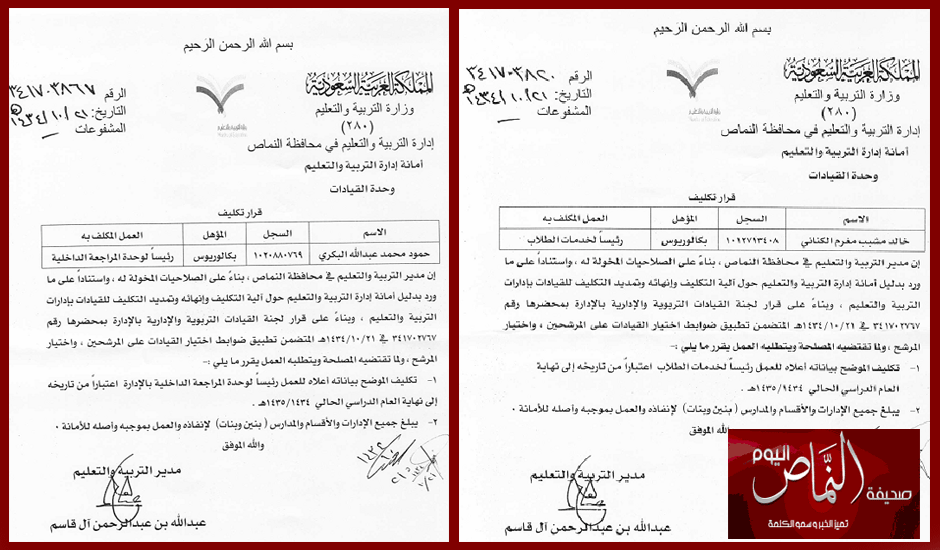 بسم الله الرحمن الرحيم
المملكة العربية السعودية
وزارة التربية والتعليم
(٢٨٠)
إدارة التربية والتعليم في محافظة النماص
أمانة إدارة التربية والتعليم
وحدة القيادات
الرقم ٣٤١٧٠٣٨٢٠
التاريخ: ١٤٣٤/١٠/٢١هـ
المشفوعات
وزارة التربية والتعليم
قرار تكليف
الاسم السجل المؤهل العمل المكلف به
خالد مشبب مغرم الكناني ١٠٢٢٧١٣٤٠٨ بكالوريوس رئيساً لخدمات الطلاب
إن مدير التربية والتعليم في محافظة النماص ، بناءً على الصلاحيات المخولة له ، واستناداً على ما
ورد بدليل أمانة إدارة التربية والتعليم حول آلية التكليف وإنهائه وتمديد التكليف للقيادات بإدارات
التربية والتعليم ، وبناءً على قرار لجنة القيادات التربوية والإدارية بالإدارة بمحضرها رقم
٣٤١٧٠٢٧٦٧ في ١٤٣٤/١٠/٢١هـ المتضمن تطبيق ضوابط اختيار القيادات على المرشحين ، واختيار
المرشح ، ولما تقتضيه المصلحة ويتطلبه العمل يقرر ما يلي :-
١- تكليف الموضح بياناته أعلاه للعمل رئيساً لخدمات الطلاب اعتباراً من تاريخه إلى نهاية
العام الدراسي الحالي ١٤٣٥/١٤٣٤هـ .
٢- يبلغ جميع الإدارات والأقسام والمدارس (بنين وبنات) لإنفاذه والعمل بموجبه وأصله للأمانة ٠
والله الموفق
مدير التربية والتعليم
عبدالله بن عبدالرحمن آل قاسم
صحيفة النماص اليوم
تميز الخبر وسمو الكلمة
بسم الله الرحمن الرحيم
المملكة العربية السعودية
وزارة التربية والتعليم
(٢٨٠)
إدارة التربية والتعليم في محافظة النماص
أمانة إدارة التربية والتعليم
وحدة القيادات
الرقم ٣٤١٧٠٣٨٦٧
التاريخ: ١٤٣٤/١٠/٢١هـ
المشفوعات
وزارة التربية والتعليم
قرار تكليف
الاسم السجل المؤهل العمل المكلف به
حمود محمد عبدالله البكري ١٠٢٠٨٨٠٧٦٩ بكالوريوس رئيساً لوحدة المراجعة الداخلية
إن مدير التربية والتعليم في محافظة النماص ، بناءً على الصلاحيات المخولة له ، واستناداً على ما
ورد بدليل أمانة إدارة التربية والتعليم حول آلية التكليف وإنهائه وتمديد التكليف للقيادات بإدارات
التربية والتعليم ، وبناءً على قرار لجنة القيادات التربوية والإدارية بالإدارة بمحضرها رقم
٣٤١٧٠٢٧٦٧ في ١٤٣٤/١٠/٢١هـ المتضمن تطبيق ضوابط اختيار القيادات على المرشحين ، واختيار
المرشح ، ولما تقتضيه المصلحة ويتطلبه العمل يقرر ما يلي :-
١- تكليف الموضح بياناته أعلاه للعمل رئيساً لوحدة المراجعة الداخلية بالإدارة اعتباراً من تاريخه
إلى نهاية العام الدراسي الحالي ١٤٣٥/١٤٣٤هـ .
٢- يبلغ جميع الإدارات والأقسام والمدارس (بنين وبنات) لإنفاذه والعمل بموجبه وأصله للأمانة ٠
والله الموفق
مدير التربية والتعليم
عبدالله بن عبدالرحمن آل قاسم